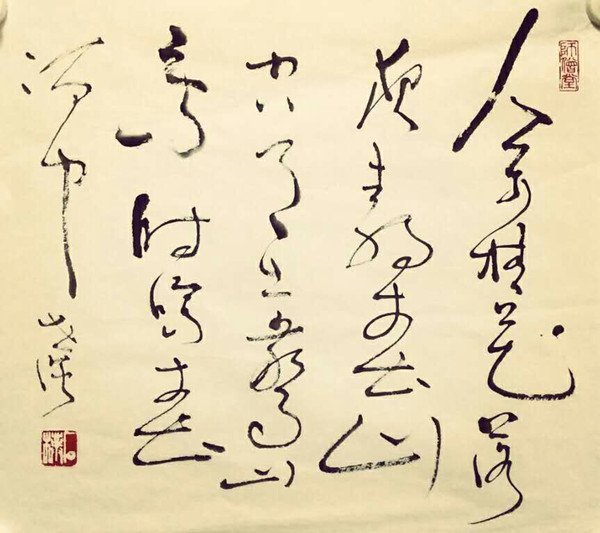 人閒桂花落
夜靜春山
空月出驚山
鳥時鳴春
澗中